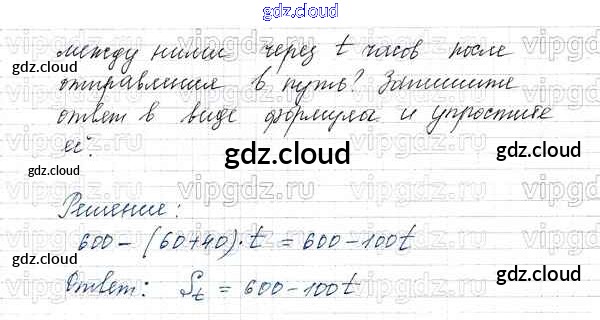 gdz.cloud
между ними через t часов после
отправления в путь? Запишите
ответ в виде формулы и упростите
её.
gdz.cloud
gdz.cloud
gdz.cloud
gdz.cloud
Решение:
600 - (60+40)·t = 600 - 100t
Ответ: St = 600 - 100t
gdz.cloud
gdz.cloud